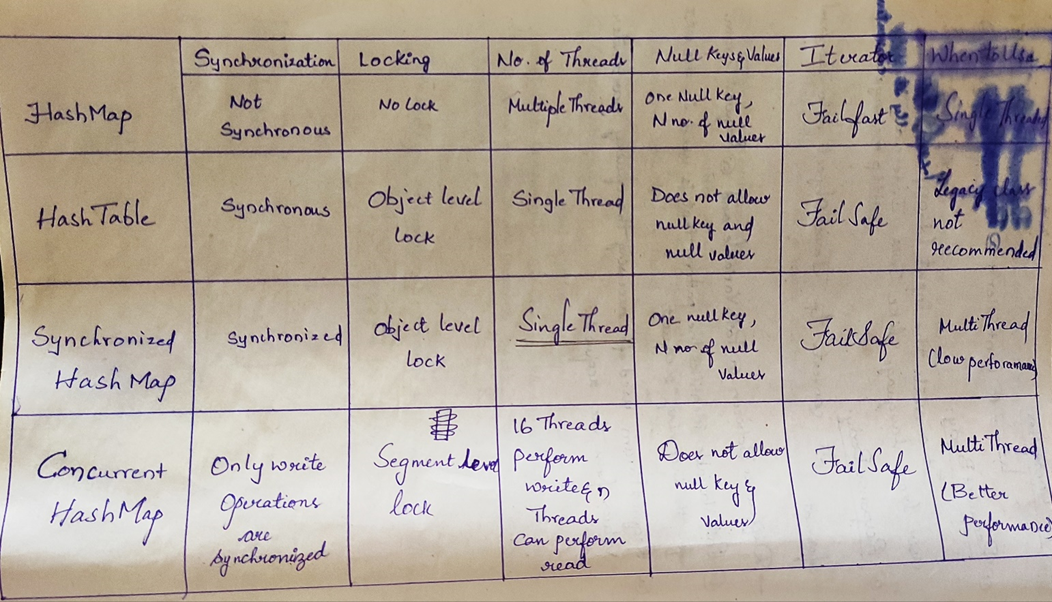 Synchronization Locking No. of Threads Null Keys & Values Iterator When to Use
HashMap
Not
Synchronous
No Lock
Multiple Threads
One Null Key,
N no. of null
values
Failfast
Single Thread
HashTable
Synchronous
Object level
Lock
Single Thread
Does not allow
null key and
null values
Fail Safe
Legacy class
not
recommended
Synchronized
Hash Map
Synchronized
Object level
Lock
Single Thread
One null key,
N no. of null
values
FailSafe
MultiThread
(low perforamance)
Concurrent
HashMap
Only write
Operations
are
synchronized
Segment level
lock
16 Threads
perform
write & n
Threads
Can perform
read
Does not allow
null key &
values
FailSafe
MultiThread
(Better
performance)